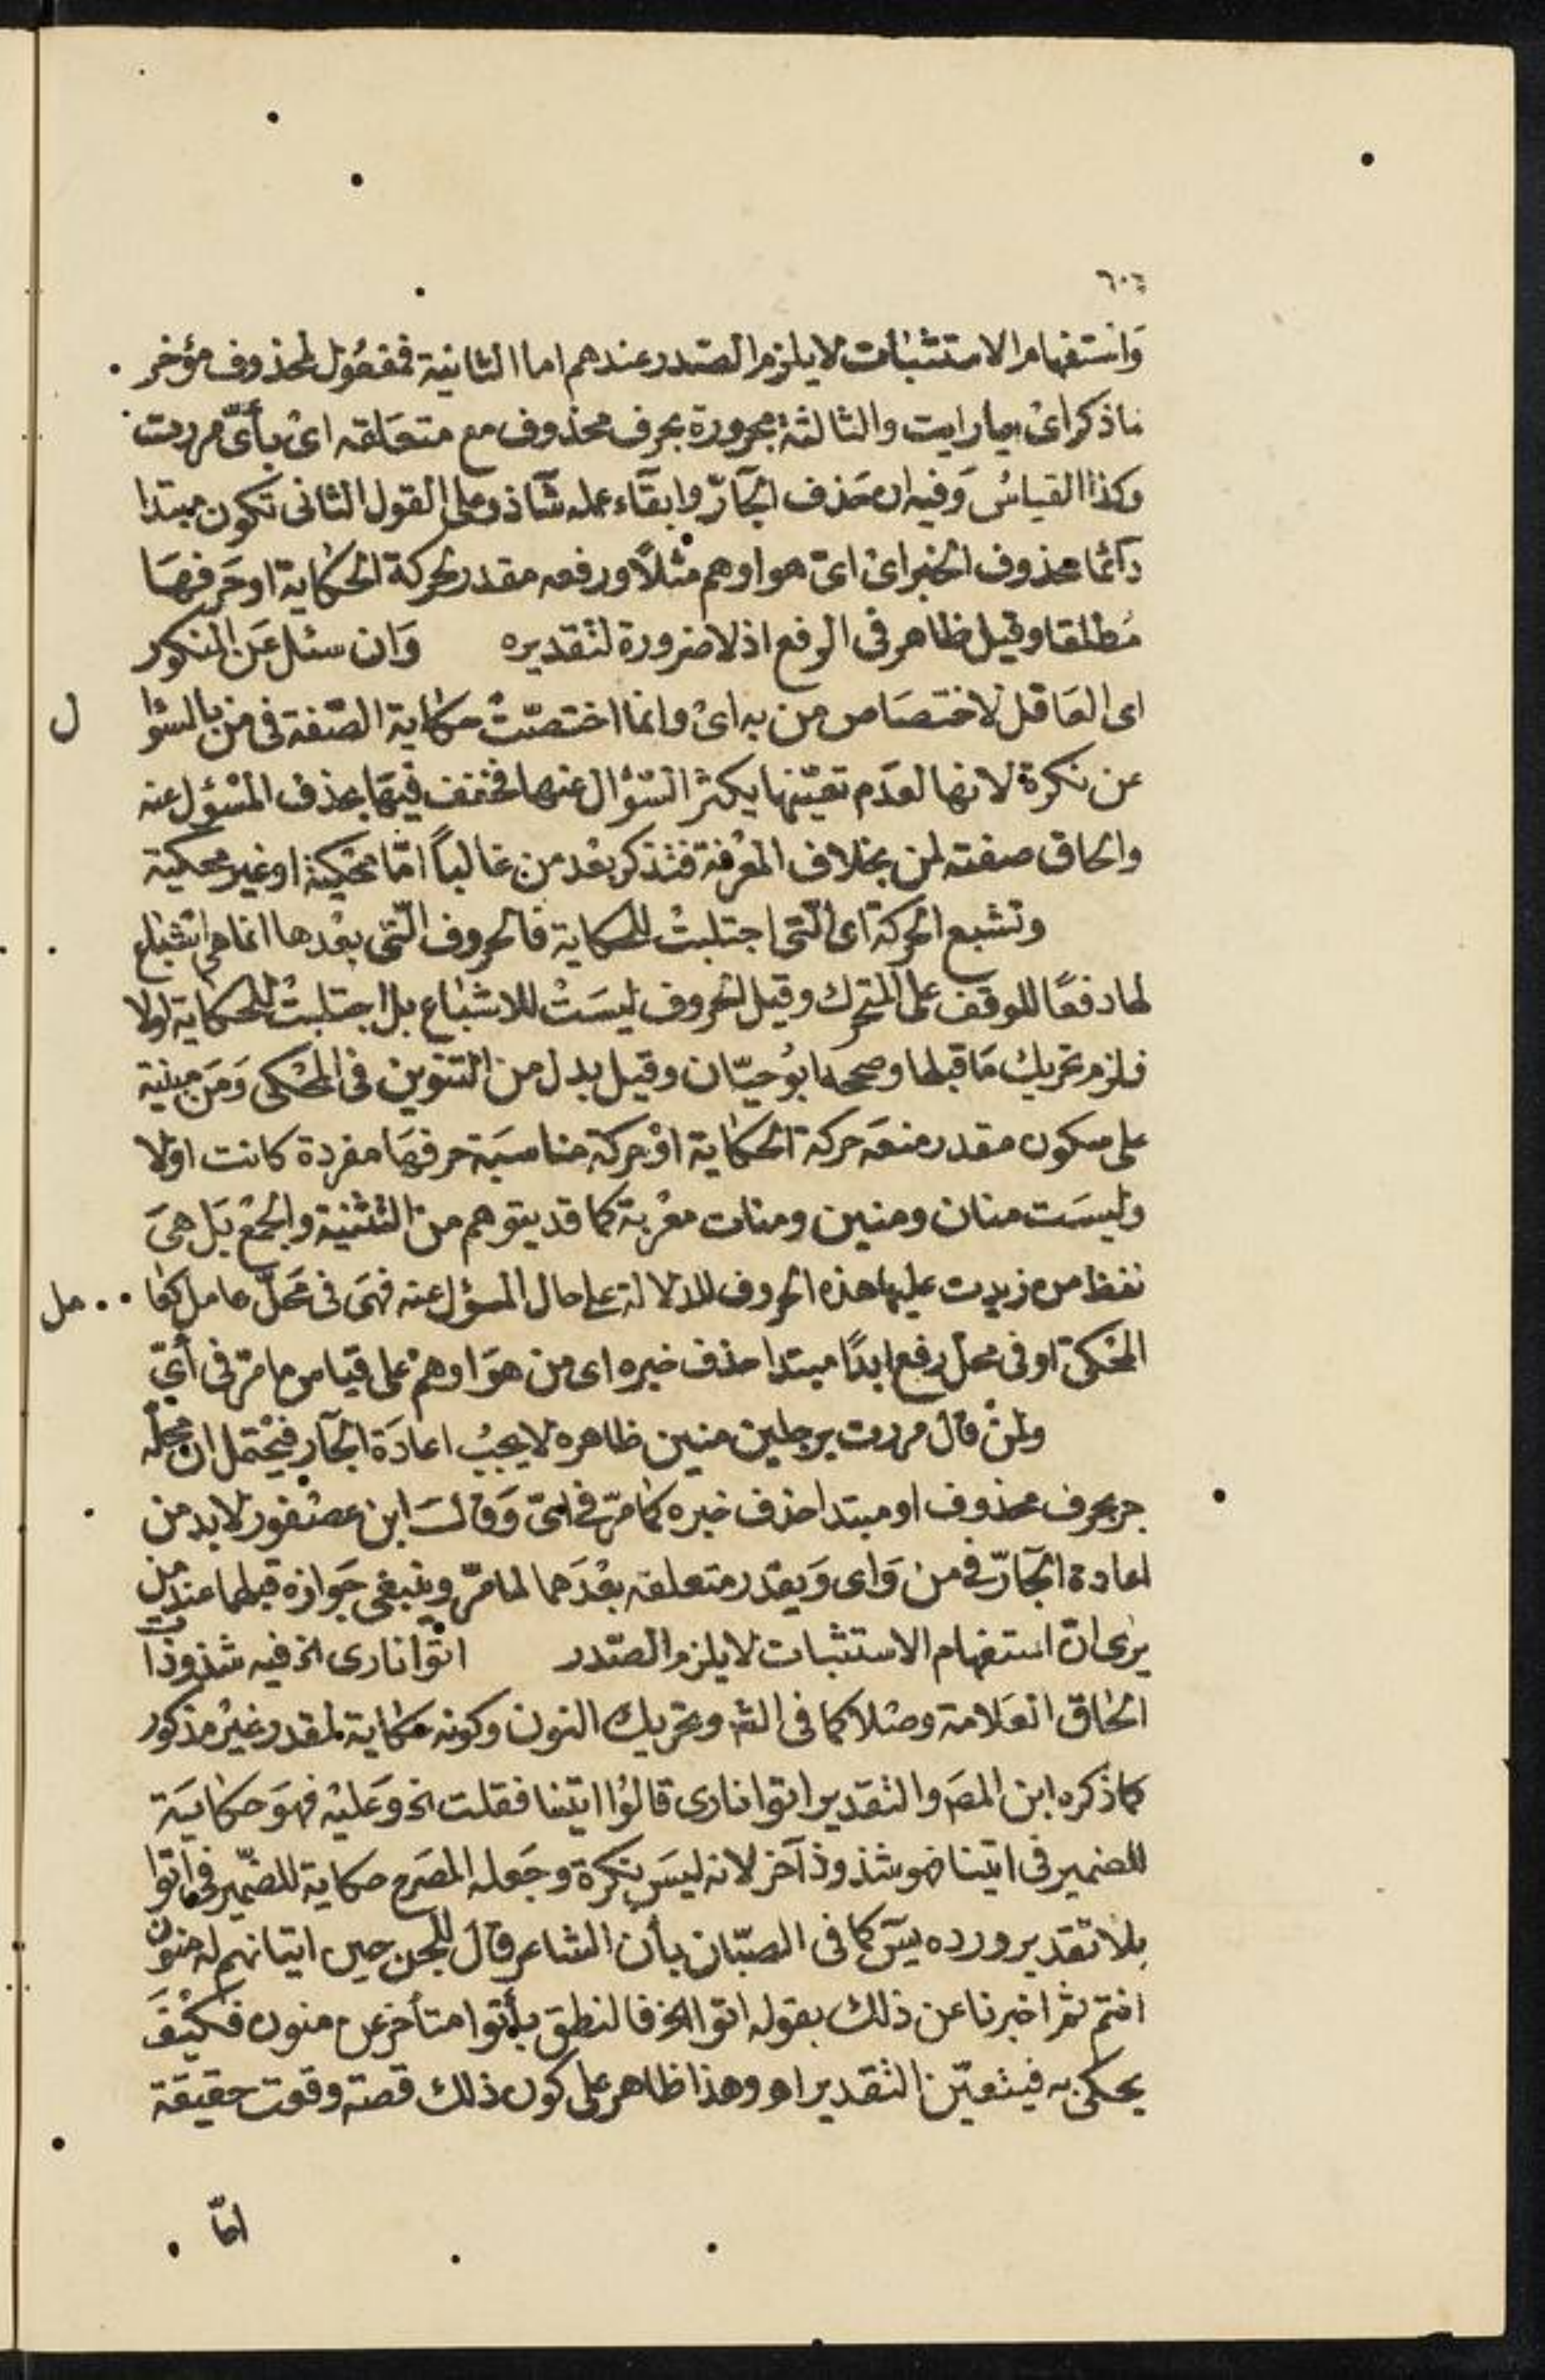 ٦٠٤
وَاستفهام الاستثبات لا يلزم الصّدر عندهم اما الثانية فمفعُول لمحذوف مؤخر
ماذكر اىْ ايما رايت والثالثة مجرورة بحرف محذوف مع متعلقه اىْ بأىّ مررت
وكذا القياسُ وَفيه ان حَذف الجَارّ وابقآء عمله شآذ وعلى القول الثانى تكون مبتدا
دائما محذوف الخبر اىْ اىّ هو او هم مثلًا ورفعه مقدر لحركة الحكاية او حَرفهَا
مُطلقا وقيل ظاهر فى الرفع اذ لا ضرورة لتقديره وَان سئل عَن المنكور
اى العَاقل لاختصَاص من به اىْ وانما اختصّتْ حكاية الصّفة فى من بالسّؤا ل
عن نكرة لانها لعدَم تعيّنها يكثر السّؤال عنها فخفف فيهَا بحذف المسْؤل عنه
والحاق صفته لمن بخلاف المعْرفة فتذكر بعْد من غالباً امّا محْكية او غير محكية
وتشبع الحركة اى الّتى اجتلبتْ للحكاية فالحروف الّتى بعْدها انما هى اشبَاع
لها دفعًا للوقف على المتحرك وقيل الحروف ليسَتْ للاشبَاع بل اجتلبتْ للحكاية اولا
فلزم تحريك مَا قبلها وصححه ابوُ حيّان وقيل بدل من التنوين فى المحْكى وَمَن مبنية
على سكون مقدر منعَه حركة الحكاية اوْ حركة مناسبَة حرفهَا مفردة كانت اوْلا
وليسَت منان ومنين ومنات معْربة كما قد يتوهم من التثنية والجمْع بَل هىَ
لفظ من زيدت عليها هذه الحروف للدلالة على حال المسؤل عنه فهىَ فى محَلّ عامل كعَا مل
المحْكىّ او فى محل رفع ابدًا مبتدا حذف خبره اى من هوَ او همْ على قياس ما مرّ فى أىّ
ولمنْ قال مررت برجلين منين ظاهره لا يجبُ اعادَة الجَار فيحْتمل ان محله
جر بحرف محذوف او مبتدا حذف خبره كمَا مرّ فى اىّ وَقالَ ابن عصْفور لا بد من
اعادة الجَارّ فى من وَاى وَيقدر متعلقه بعْدَهما لما مرّ وينبغى جَوازه قبلهما عند من
يرى انّ استفهام الاستثبات لا يلزم الصّدر اتوْا نارى الخ فيه شذوذات
الحاق العَلامة وصْلا كما فى الشّ وتحريك النون وكونه حكاية لمقدر غيْر مذكور
كما ذكره ابن المصَ والتقدير اتوا نارى قالوُا اتينا فقلت الخ وَعَليْه فهوَ حكايَة
للضمير فى اتينا فهو شذوذ آخر لانه ليسَ نكرة وجَعله المصَرح حكاية للضّمير فى اتوا
بلا تقدير ورده يسَ كما فى الصبّان بأن الشاعر قالَ للجن حين اتيانهم له منوْن
انتم ثم اخبرنا عن ذلك بقوله اتوا الخ فالنطق بأتوا متأخر عن منون فكيْفَ
يحكى به فيتعيّن التقدير اهـ وهذا ظاهر على كون ذلك قصة وقعت حقيقة
امّا